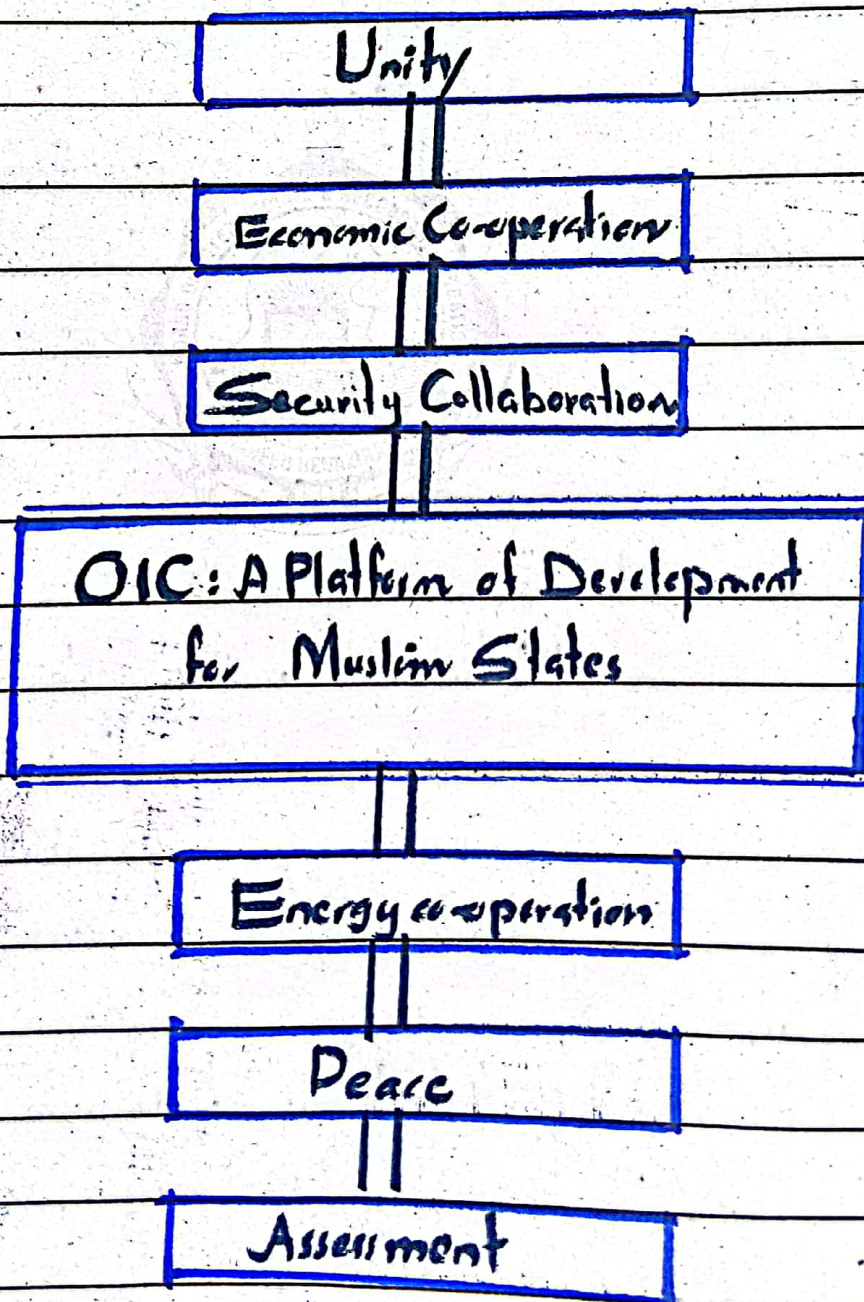 Unity
Economic Co-operation
Security Collaboration
OIC: A Platform of Development
for Muslim States
Energy co-operation
Peace
Assessment